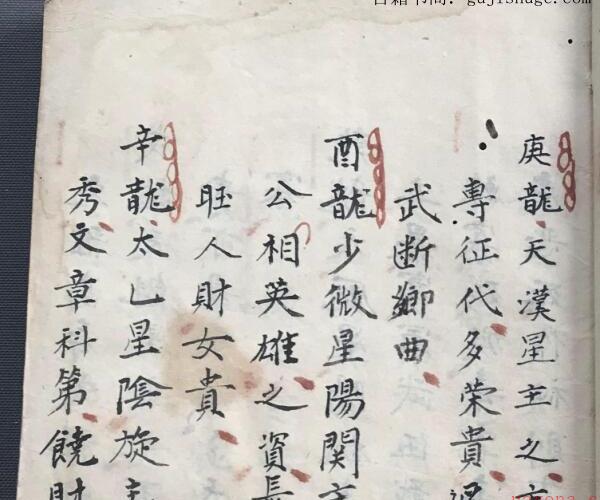 古籍书阁: gujishuge.com
庚龍天漢星主之
專征代多荣貴
武断鄉曲
酉龍少微星陽関
公相英雄之資長
旺人財女貴
辛龍太乙星陰旋主
秀文章科第饒財